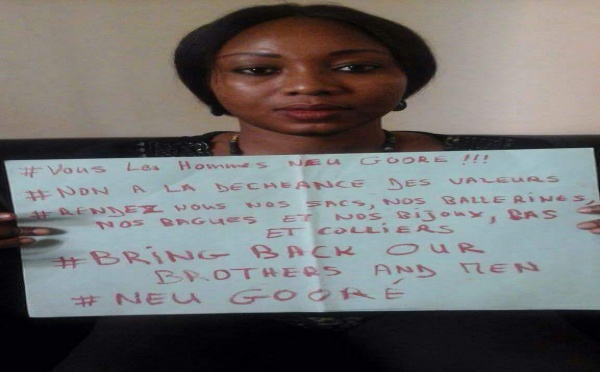 # VOUS LES HOMMES NEU GOORE !!!
# NON A LA DECHEANCE DES VALEURS
# RENDEZ NOUS NOS SACS, NOS BALLERINES,
NOS BAGUES ET NOS BIJOUX, BAS
ET COLLIERS
# BRING BACK OUR
BROTHERS AND MEN
# NEU GOORÉ